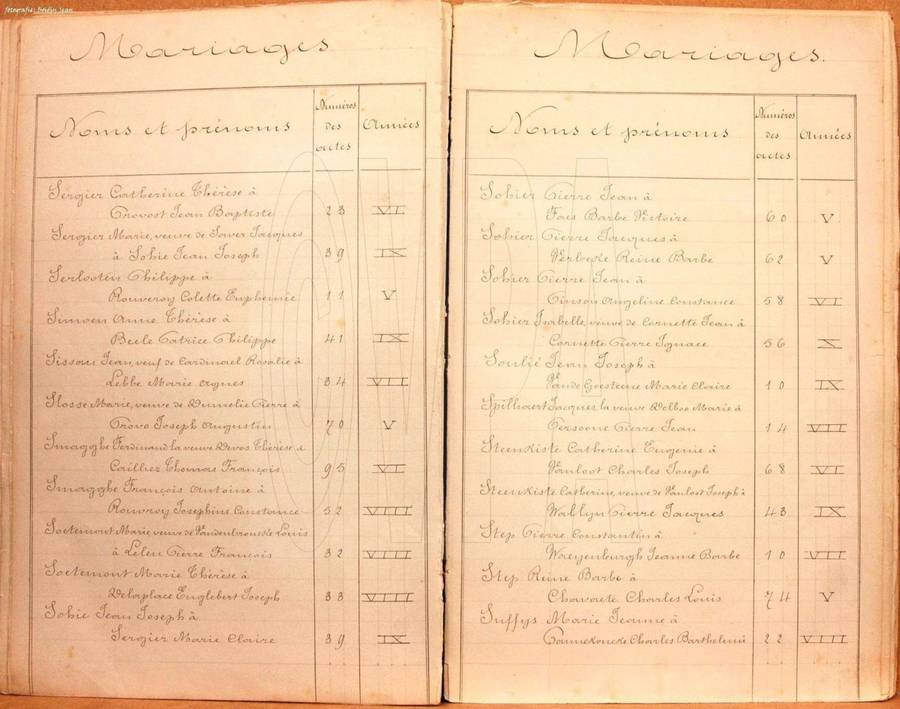 fotografie: Frérin Jean
Mariages
Noms et prénoms
Numéros des actes
Années
Sergier Catherine Thérèse à
Provost Jean Baptiste 23 VI
Sergier Marie, veuve de Saver Jacques
à Sohie Jean Joseph 39 IX
Serlooten Philippe à
Rouveroy Colette Euphemie 11 V
Simoen Anne Thérèse à
Beile Patrice Philippe 41 IX
Sissou Jean, veuf de Cardinael Rosalie à
Lebbe Marie Agnes 34 VII
Slosse Marie, veuve de Dumelie Pierre à
Provo Joseph Augustin 70 V
Smagghe Ferdinand la veuve Devos Thérèse à
Cailliez Thomas François 95 VI
Smagghe François Antoine à
Rouvroy Josephine Constance 52 VIII
Soetemont Marie veuve de Vandenbroucke Louis
à Leleu Pierre François 32 VIII
Soetemont Marie Thérèse à
Delaplace Englebert Joseph 33 VIII
Sohie Jean Joseph à
Sergier Marie Claire 39 IX
Mariages.
Noms et prénoms
Numéros des actes
Années
Sohier Pierre Jean à
Fais Barbe Victoire 60 V
Sohier Pierre Jacques à
Verloeke Reine Barbe 62 V
Sohier Pierre Jean à
Pinson Angeline Constance 58 VI
Sohier Isabelle, veuve de Cornette Jean à
Cornette Pierre Ignace 56 X
Soulié Jean Joseph à
Vande Goesteene Marie Claire 10 IX
Spilliaert Jacques la veuve Delboo Marie à
Persoone Pierre Jean 14 VII
Steenkiste Catherine Eugenie à
Vanloot Charles Joseph 68 VI
Steenkiste Catherine, veuve de Vanloot Joseph à
Wallyn Pierre Jacques 43 IX
Step Pierre Constantin à
Waeyenburgh Jeanne Barbe 10 VII
Step Reine Barbe à
Chavaete Charles Louis 74 V
Suffys Marie Jeanne à
Pannekoucke Charles Barthelmie 22 VIII